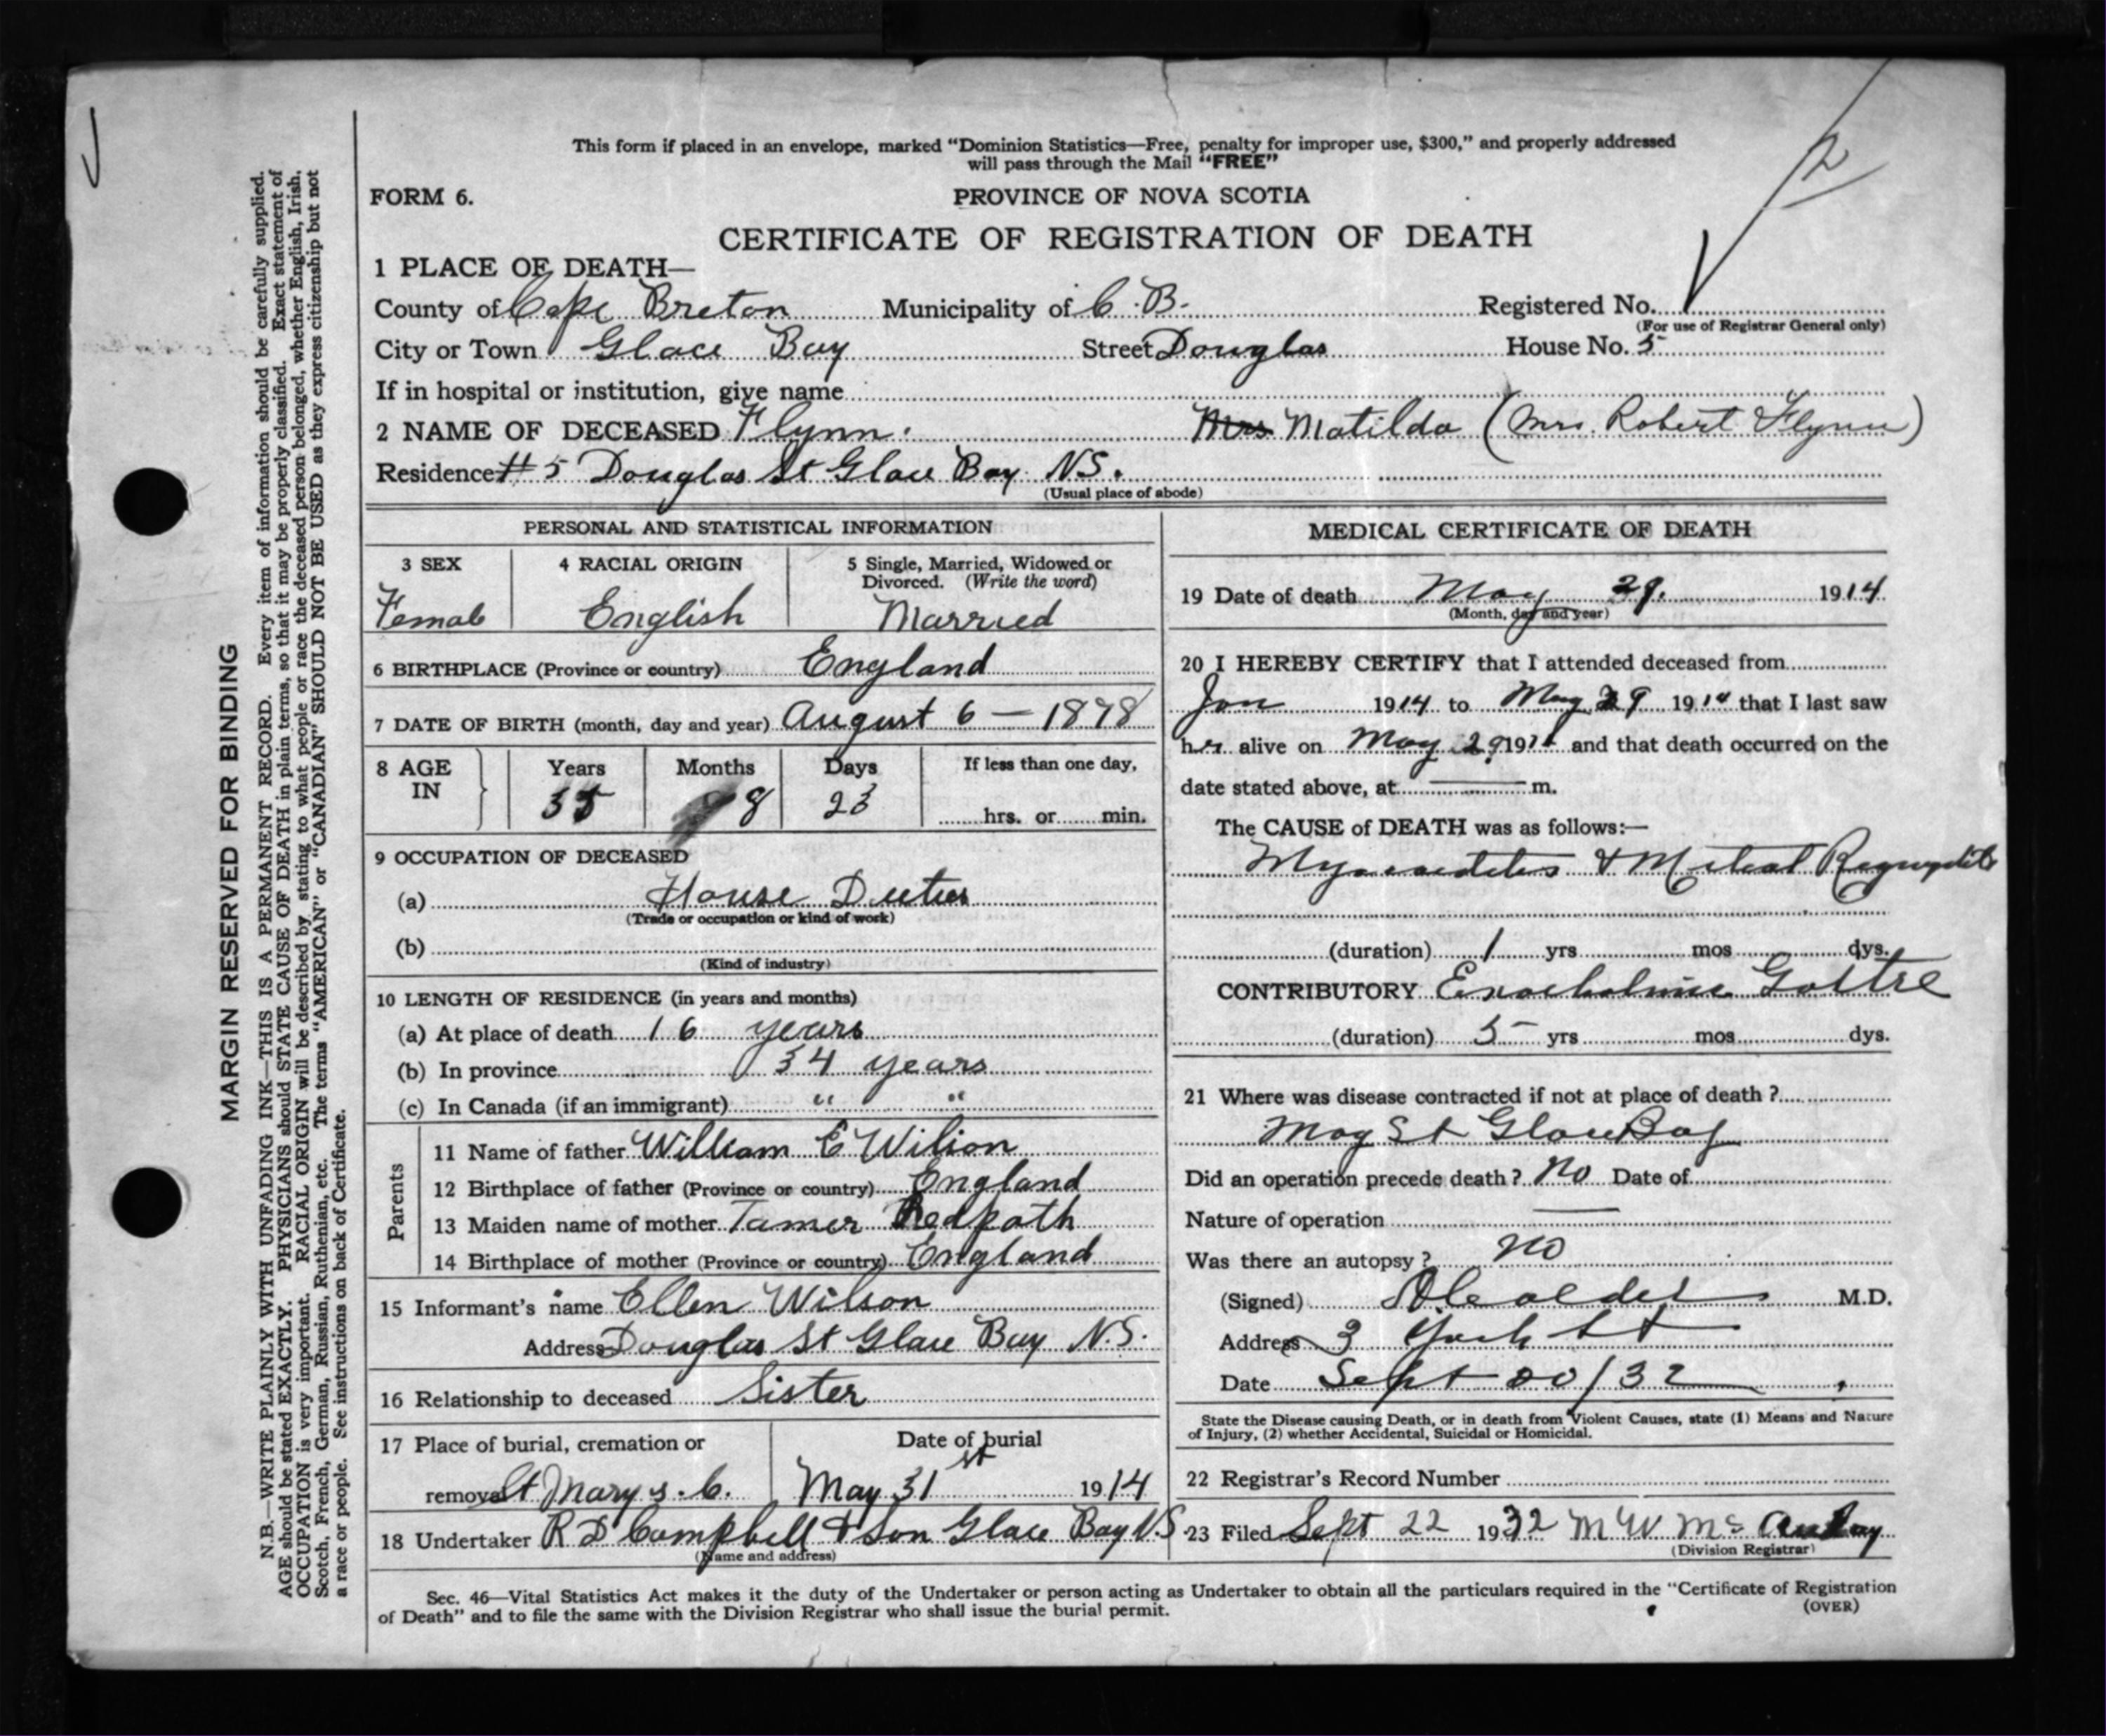 This form if placed in an envelope, marked “Dominion Statistics—Free, penalty for improper use, $300,” and properly addressed
will pass through the Mail “FREE”
2
FORM 6.
PROVINCE OF NOVA SCOTIA
CERTIFICATE OF REGISTRATION OF DEATH
1 PLACE OF DEATH—
County of Cape Breton Municipality of C.B. Registered No.
(For use of Registrar General only)
City or Town Glace Bay Street Douglas House No. 5
If in hospital or institution, give name
2 NAME OF DECEASED Flynn. Mrs Matilda (Mrs. Robert Flynn)
Residence #5 Douglas St Glace Bay N.S.
(Usual place of abode)
PERSONAL AND STATISTICAL INFORMATION
3 SEX 4 RACIAL ORIGIN 5 Single, Married, Widowed or
Divorced. (Write the word)
Female English Married
6 BIRTHPLACE (Province or country) England
7 DATE OF BIRTH (month, day and year) August 6 — 1878
8 AGE IN Years Months Days If less than one day,
35 8 23 hrs. or min.
9 OCCUPATION OF DECEASED
(a) House Duties
(Trade or occupation or kind of work)
(b)
(Kind of industry)
10 LENGTH OF RESIDENCE (in years and months)
(a) At place of death 16 years
(b) In province 34 years
(c) In Canada (if an immigrant) " "
Parents
11 Name of father William E Wilson
12 Birthplace of father (Province or country) England
13 Maiden name of mother Tamer Redpath
14 Birthplace of mother (Province or country) England
15 Informant's name Ellen Wilson
Address Douglas St Glace Bay N.S.
16 Relationship to deceased Sister
17 Place of burial, cremation or Date of burial
removal St Marys. C. May 31st 1914
18 Undertaker R D Campbell & Son Glace Bay N.S
(Name and address)
MEDICAL CERTIFICATE OF DEATH
19 Date of death May 29. 1914
(Month, day and year)
20 I HEREBY CERTIFY that I attended deceased from
Jan 1914 to May 29 1914 that I last saw
her alive on May 29 1914 and that death occurred on the
date stated above, at — m.
The CAUSE of DEATH was as follows:—
& Mitral
(duration) 1 yrs mos dys.
CONTRIBUTORY Goitre
(duration) 5 yrs mos dys.
21 Where was disease contracted if not at place of death ?
May St Glace Bay
Did an operation precede death ? No Date of
Nature of operation —
Was there an autopsy ? no
(Signed) M.D.
Address 3 York St
Date Sept 20/32
State the Disease causing Death, or in death from Violent Causes, state (1) Means and Nature
of Injury, (2) whether Accidental, Suicidal or Homicidal.
22 Registrar's Record Number
23 Filed Sept 22 1932 M W
(Division Registrar)
Sec. 46—Vital Statistics Act makes it the duty of the Undertaker or person acting as Undertaker to obtain all the particulars required in the “Certificate of Registration
of Death” and to file the same with the Division Registrar who shall issue the burial permit.
(OVER)
MARGIN RESERVED FOR BINDING
N.B.—WRITE PLAINLY WITH UNFADING INK—THIS IS A PERMANENT RECORD. Every item of information should be carefully supplied.
AGE should be stated EXACTLY. PHYSICIANS should STATE CAUSE OF DEATH in plain terms, so that it may be properly classified. Exact statement of
OCCUPATION is very important. RACIAL ORIGIN will be described by stating to what people or race the deceased person belonged, whether English, Irish,
Scotch, French, German, Russian, Ruthenian, etc. The terms “AMERICAN” or “CANADIAN” SHOULD NOT BE USED as they express citizenship but not
a race or people. See instructions on back of Certificate.